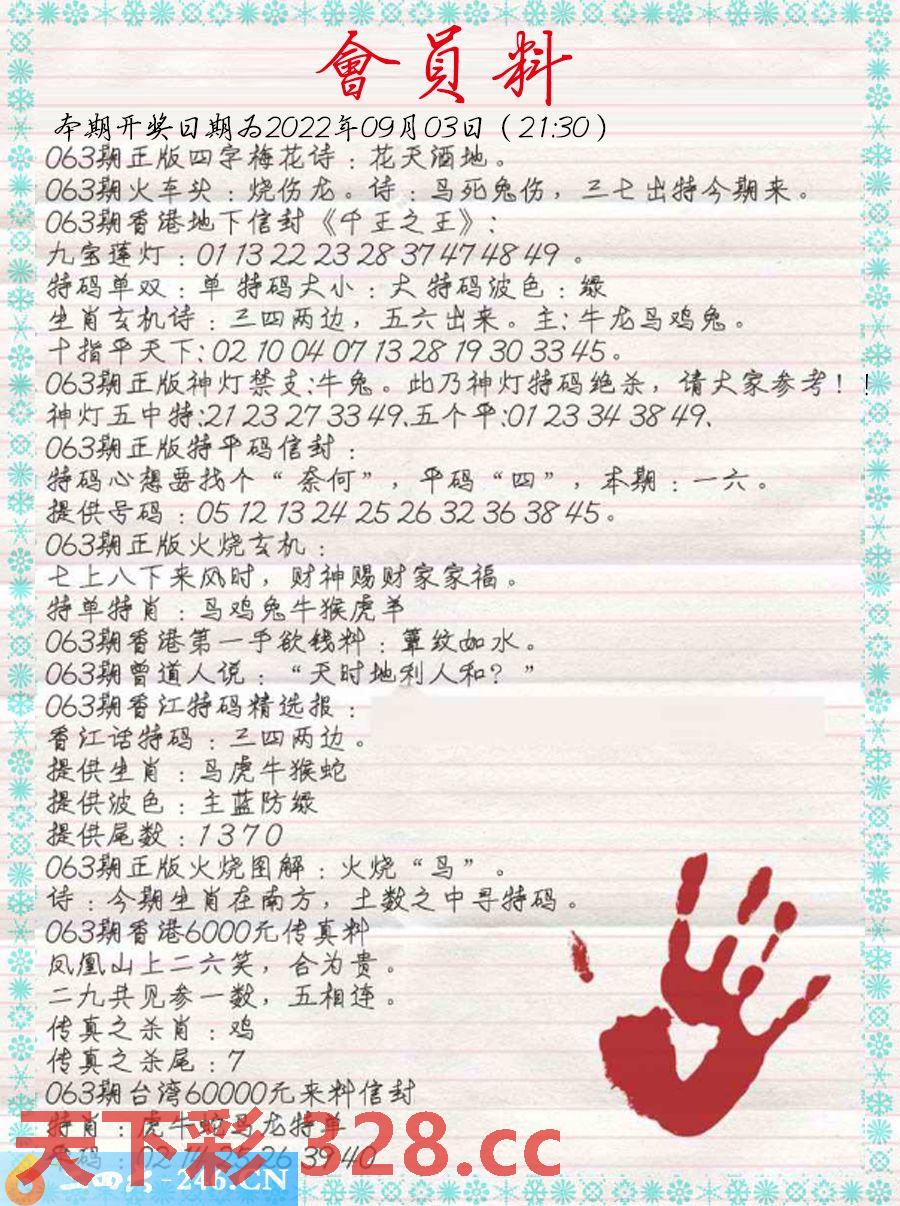 會員料
本期开奖日期为2022年09月03日（21:30）
063期正版四字梅花诗：花天酒地。
063期火车头：烧伤龙。诗：鸟死兔伤，三七出特今期来。
063期香港地下信封《千王之王》：
九宝莲灯：01 13 22 23 28 37 47 48 49 。
特码单双：单 特码大小：大 特码波色：绿
生肖玄机诗：三四两边，五六出来。主：牛龙马鸡兔。
十指平天下：02 10 04 07 13 28 19 30 33 45。
063期正版神灯禁支：牛兔。此乃神灯特码绝杀，请大家参考！！
神灯五中特：21 23 27 33 49、五个平：01 23 34 38 49、
063期正版特平码信封：
特码心想要找个“奈何”，平码“四”，本期：一六。
提供号码：05 12 13 24 25 26 32 36 38 45。
063期正版火烧玄机：
七上八下来风时，财神赐财家家福。
特单特肖：马鸡兔牛猴虎羊
063期香港第一手欲钱料：簟纹如水。
063期曾道人说：“天时地利人和？”
063期香江特码精选报：
香江话特码：三四两边。
提供生肖：马虎牛猴蛇
提供波色：主蓝防绿
提供尾数：1 3 7 0
063期正版火烧图解：火烧“鸟”。
诗：今期生肖在南方，土数之中寻特码。
063期香港6000元传真料
凤凰山上二六笑，合为贵。
二九共见参一数，五相连。
传真之杀肖：鸡
传真之杀尾：7
063期台湾60000元来料信封
特肖：虎牛蛇马龙特单
码：02 14 25 26 39 40
天下彩 328.cc
-246.CN